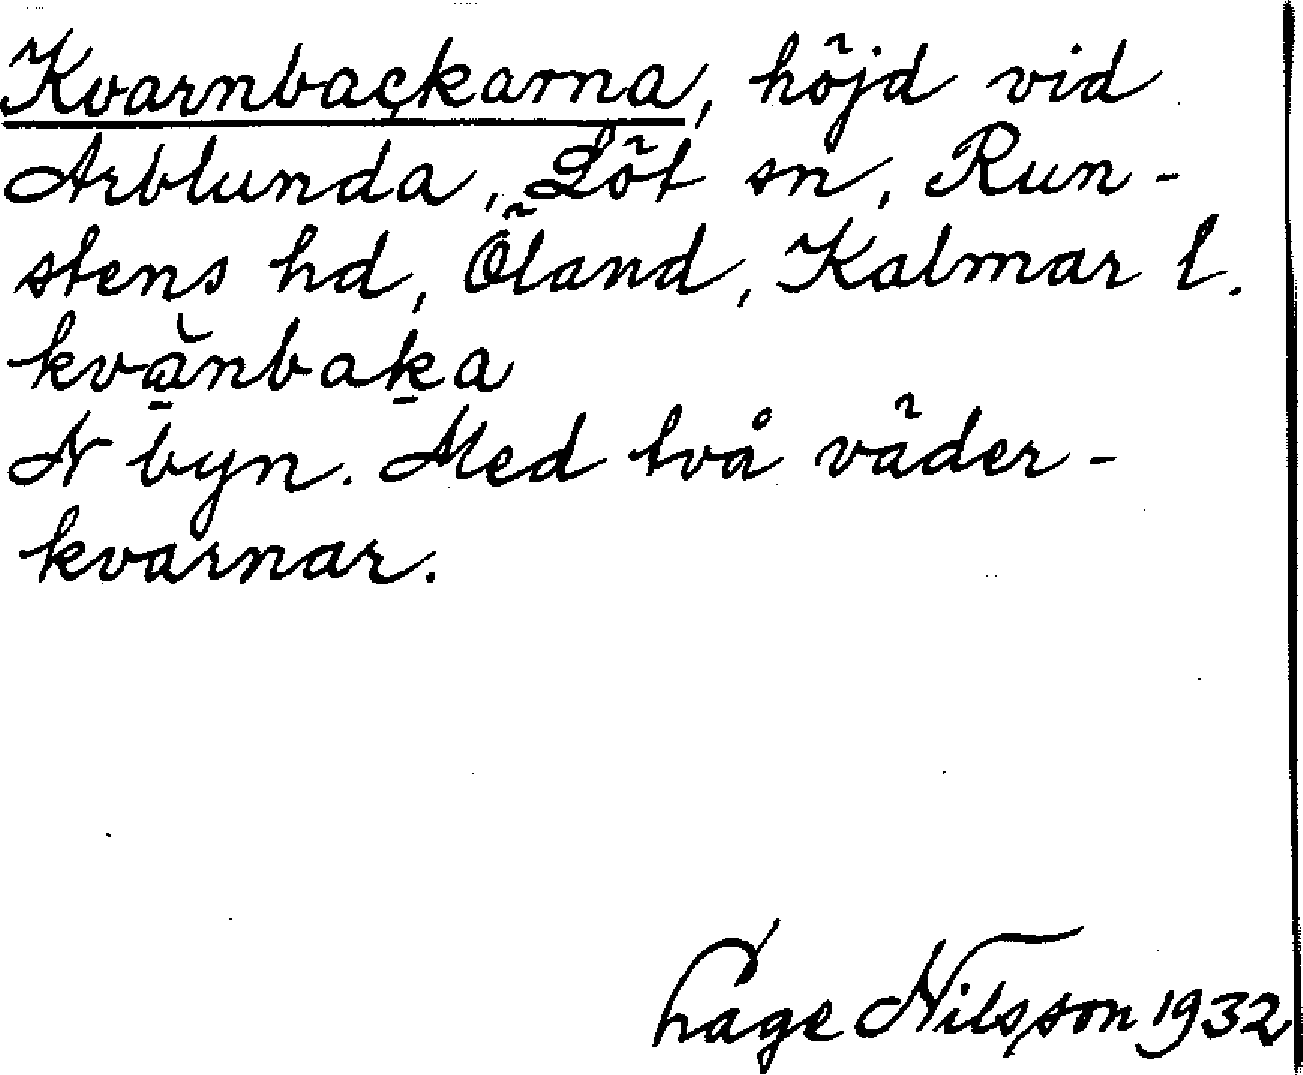 Kvarnbackarna, höjd vid
Arblunda, Löt sn, Run-
stens hd, Öland, Kalmar l.
kvȧ̠̆nbak̠a
N byn. Med två väder-
kvarnar.
Lage Nilsson 1932